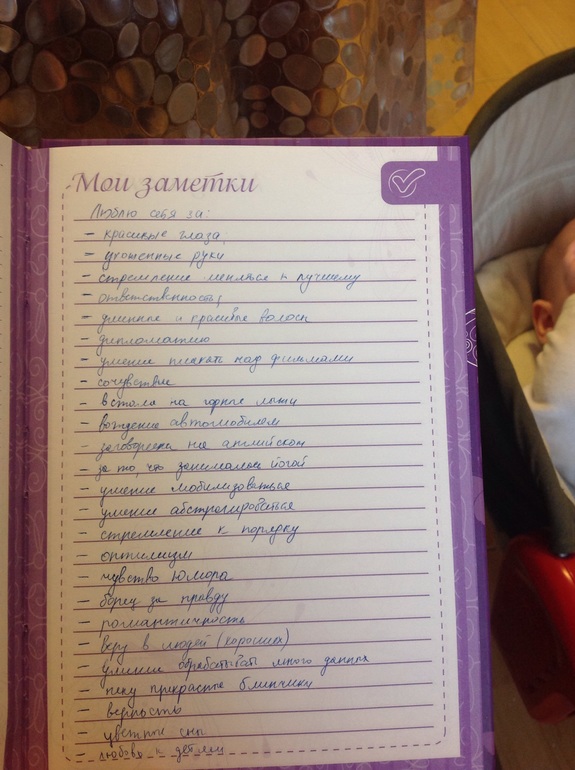 Мои заметки
Люблю себя за:
- красивые глаза;
- ухоженные руки
- стремление меняться к лучшему
- ответственность;
- длинные и красивые волосы
- дипломатию
- умение плакать над фильмами
- сочувствие
- встала на горные лыжи
- вождение автомобилем
- заговорела на английском
- за то, что занималась йогой
- умение мобилизоваться
- умение абстрагироваться
- стремление к порядку
- оптимизм
- чувство юмора
- борец за правду
- романтичность
- веру в людей (хороших)
- умение обрабатывать много данных
- пеку прекрасные блинчики
- верность
- цветные сны
- любовь к детям